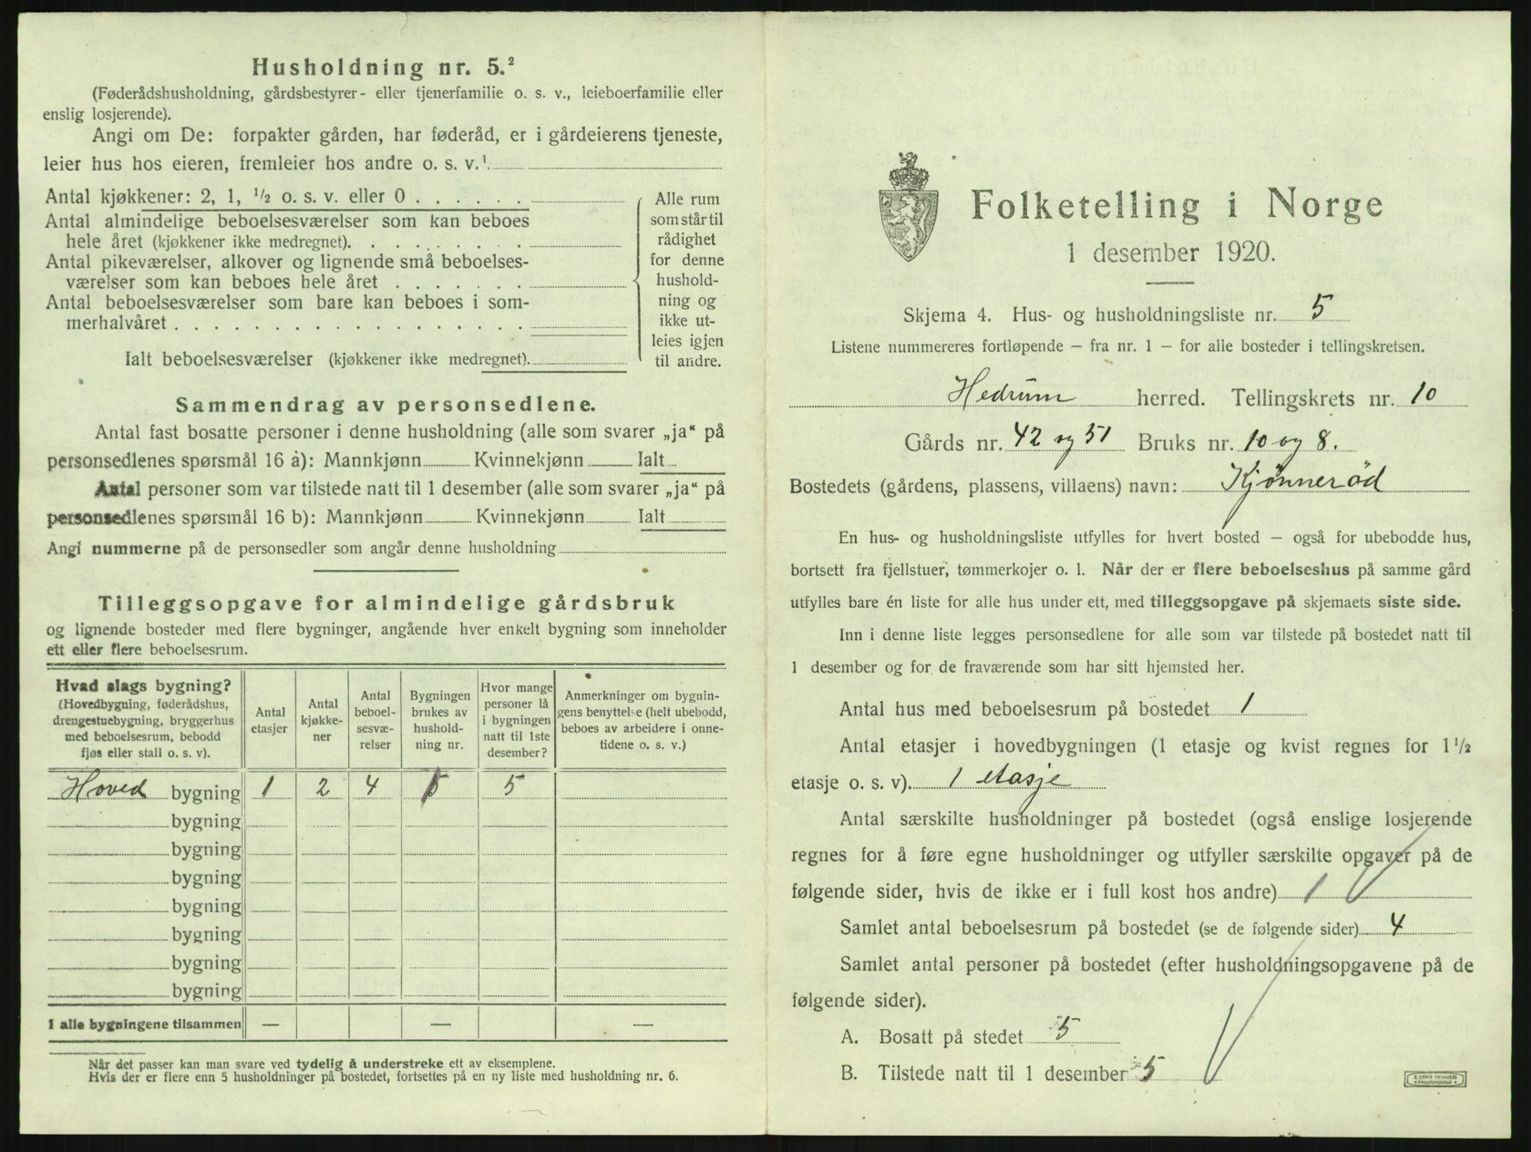 Husholdning nr. 5.²
(Føderådshusholdning, gårdsbestyrer- eller tjenerfamilie o. s. v., leieboerfamilie eller
enslig losjerende).
Angi om De: forpakter gården, har føderåd, er i gårdeierens tjeneste,
leier hus hos eieren, fremleier hos andre o. s. v.¹
Antal kjøkkener: 2, 1, ½ o. s. v. eller 0 . . . . . .
Antal almindelige beboelsesværelser som kan beboes
hele året (kjøkkener ikke medregnet). . . . . . . . .
Antal pikeværelser, alkover og lignende små beboelses-
værelser som kan beboes hele året . . . . . . .
Antal beboelsesværelser som bare kan beboes i som-
merhalvåret . . . . . . . . . . . . . . . . . .
Ialt beboelsesværelser (kjøkkener ikke medregnet).
Alle rum
som står til
rådighet
for denne
hushold-
ning og
ikke ut-
leies igjen
til andre.
Sammendrag av personsedlene.
Antal fast bosatte personer i denne husholdning (alle som svarer „ja“ på
personsedlenes spørsmål 16 a): Mannkjønn Kvinnekjønn Ialt
Antal personer som var tilstede natt til 1 desember (alle som svarer „ja“ på
personsedlenes spørsmål 16 b): Mannkjønn Kvinnekjønn Ialt
Angi nummerne på de personsedler som angår denne husholdning
Tilleggsopgave for almindelige gårdsbruk
og lignende bosteder med flere bygninger, angående hver enkelt bygning som inneholder
ett eller flere beboelsesrum.
Hvad slags bygning?
(Hovedbygning, føderådshus,
drengestuebygning, bryggerhus
med beboelsesrum, bebodd
fjøs eller stall o. s. v).
Antal
etasjer
Antal
kjøkke-
ner
Antal
beboel-
sesvæ-
relser
Bygningen
brukes av
hushold-
ning nr.
Hvor mange
personer lå
i bygningen
natt til 1ste
desember?
Anmerkninger om bygnin-
gens benyttelse (helt ubebodd,
beboes av arbeidere i onne-
tidene o. s. v.)
Hoved bygning 1 2 4 5
bygning
bygning
bygning
bygning
bygning
bygning
bygning
I alle bygningene tilsammen — — —
Når det passer kan man svare ved tydelig å understreke ett av eksemplene.
Hvis der er flere enn 5 husholdninger på bostedet, fortsettes på en ny liste med husholdning nr. 6.
Folketelling i Norge
1 desember 1920.
Skjema 4. Hus- og husholdningsliste nr. 5
Listene nummereres fortløpende – fra nr. 1 – for alle bosteder i tellingskretsen.
Hedrum herred. Tellingskrets nr. 10
Gårds nr. 42 og 51 Bruks nr. 10 og 8.
Bostedets (gårdens, plassens, villaens) navn: Kjønnerød
En hus- og husholdningsliste utfylles for hvert bosted – også for ubebodde hus,
bortsett fra fjellstuer, tømmerkojer o. l. Når der er flere beboelseshus på samme gård
utfylles bare én liste for alle hus under ett, med tilleggsopgave på skjemaets siste side.
Inn i denne liste legges personsedlene for alle som var tilstede på bostedet natt til
1 desember og for de fraværende som har sitt hjemsted her.
Antal hus med beboelsesrum på bostedet 1
Antal etasjer i hovedbygningen (1 etasje og kvist regnes for 1½
etasje o. s. v). 1 etasje
Antal særskilte husholdninger på bostedet (også enslige losjerende
regnes for å føre egne husholdninger og utfyller særskilte opgaver på de
følgende sider, hvis de ikke er i full kost hos andre) 1
Samlet antal beboelsesrum på bostedet (se de følgende sider) 4
Samlet antal personer på bostedet (efter husholdningsopgavene på de
følgende sider).
A. Bosatt på stedet 5
B. Tilstede natt til 1 desember 5